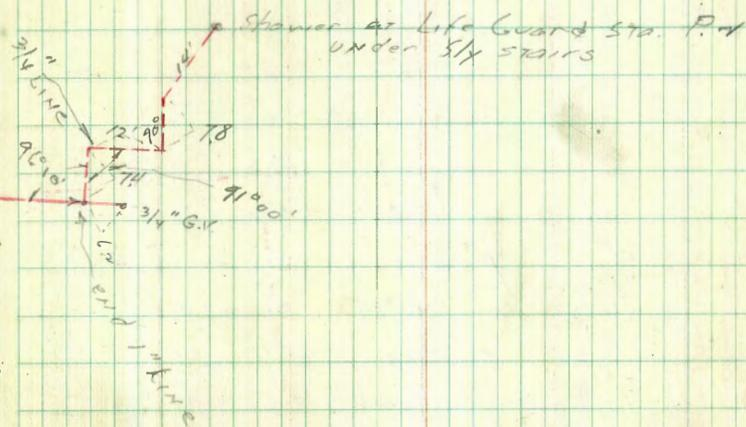 Shower at Life Guard Sta.
under S'ly stairs
14'
3/4" LINE
12'
90°
7.8
96°10'
7.4
91°00'
3/4" G.V.
END 1" LINE